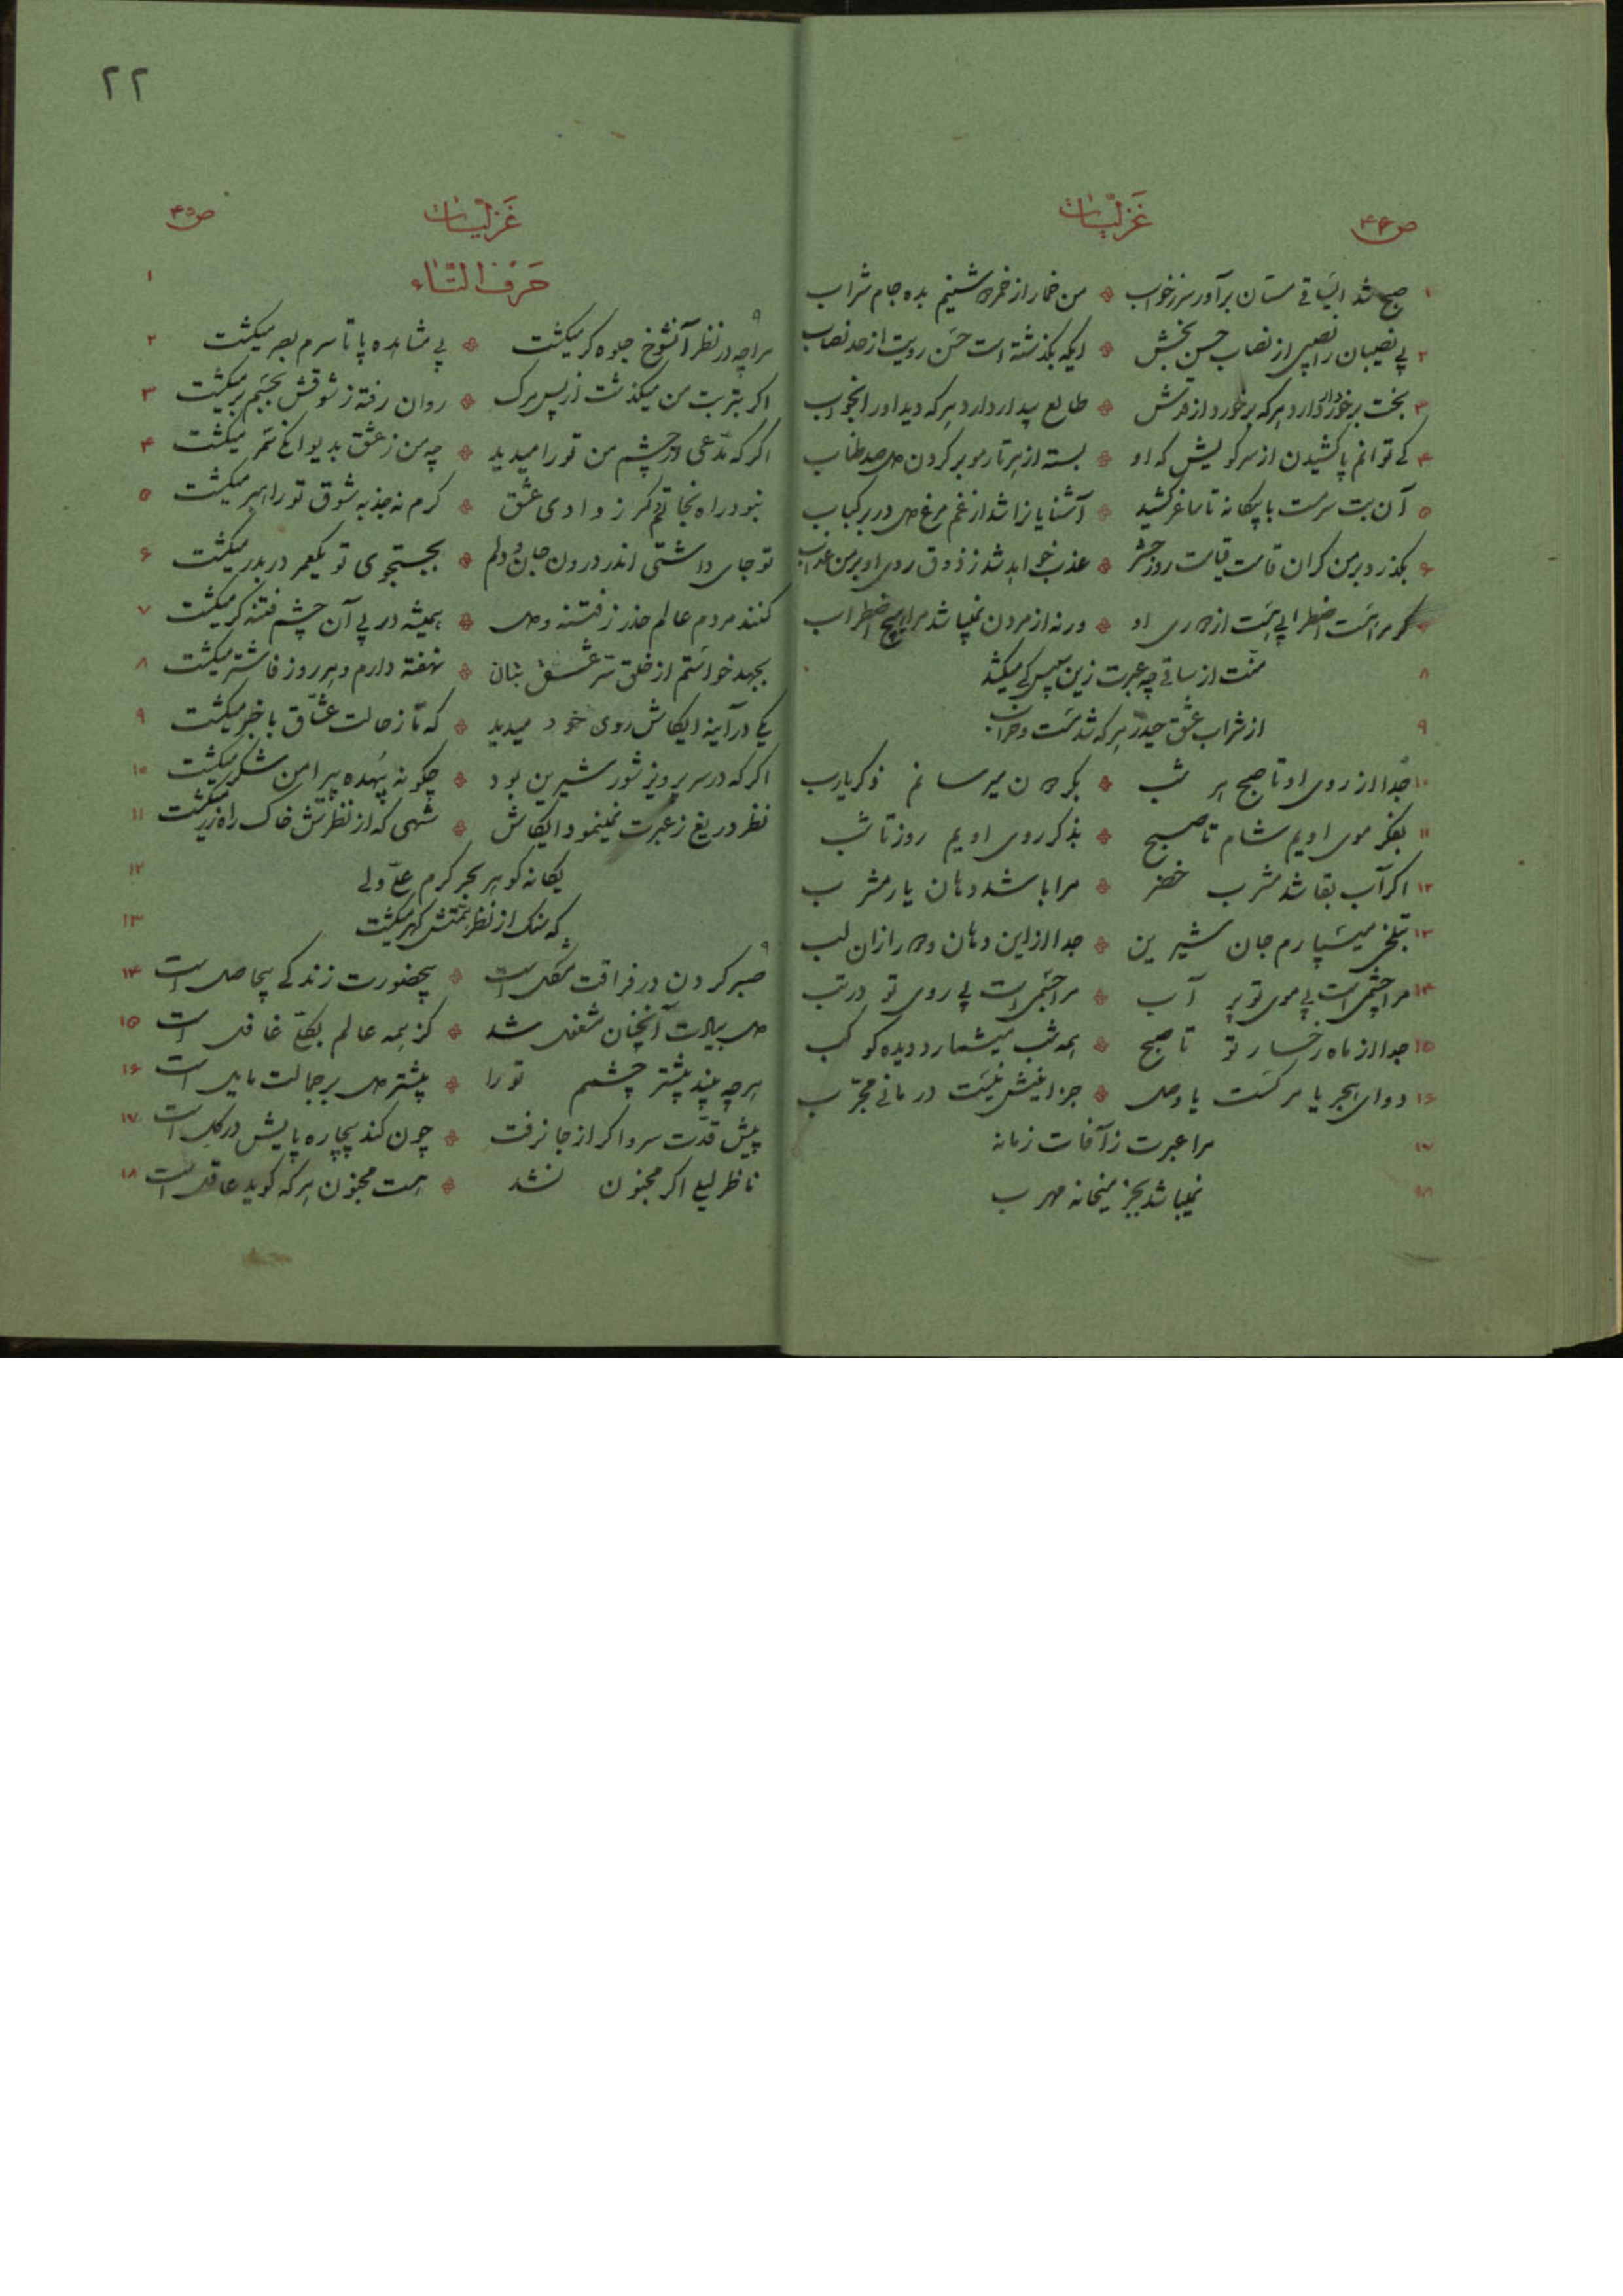 ص۴۴
غَزلیّات
۱ صبح شد ایساقی مستان برآور سر ز خواب ❖ من خمار از خمر دوشینم بده جام شراب
۲ بی نصیبان را نصیبی از نصاب حسن بخش ❖ ایکه بگذشته است حسن رویت از حد نصاب
۳ بخت برخوردار دارد هرکه برخورد از قدش ❖ طالع بیدار دارد هرکه دید او را بخواب
۴ کی توانم پا کشیدن از سر کویش که او ❖ بسته از هر تار مو بر گردن دل صد طناب
۵ آن بت سرمست با بیگانه تا ساغر کشید ❖ آشنایانرا شد از غم مرغ دل در بر کباب
۶ بگذرد بر من گران قامت قیامت روز حشر ❖ عذب خواهد شد ز ذوق روی او بر من عذاب
گر مرا هست اضطرابی هست از دوری او ❖ ورنه از مردن نمیباشد مرا هیچ اضطراب
۸ منّت از ساقی چه عبرت زین سپس کی میکشد
۹ از شراب عشق حیدر هرکه شد مست و خراب
۱۰ جدا از روی او تا صبح هر شب ❖ بگردون میرسانم ذکر یارب
۱۱ بفکر موی اویم شام تا صبح ❖ بذکر روی اویم روز تا شب
۱۲ اگر آب بقا شد مشرب خضر ❖ مرا باشد دهان یار مشرب
۱۳ بتلخی میسپارم جان شیرین ❖ جدا از این دهان دور از آن لب
۱۴ مرا چشمی است بی موی تو پر آب ❖ مرا جسمی است بی روی تو در تب
۱۵ جدا از ماه رخسار تو تا صبح ❖ همه شب میشمارد دیده کوکب
۱۶ دوای هجر یا مرگست یا وصل ❖ جز اینش نیست درمانی مجرّب
۱۷ مرا عبرت ز آفات زمانه
۱۸ نمیباشد بجز میخانه مهرب
۲۲
غَزلیّات
ص۴۵
۱ حَرفُ التّاء
۲ مرا چه در نظر آنشوخ جلوه گر میگشت ❖ پی مشاهده پا تا سرم بصر میگشت
۳ اگر بتربت من میگذشت از پس مرگ ❖ روان رفته ز شوقش بجسم بر میگشت
۴ اگر که مدّعی از چشم من تو را میدید ❖ چه من ز عشق بدیوانگی سمر میگشت
۵ نبود راه نجاتم دگر ز وادی عشق ❖ گرم نه جذبه شوق تو راهبر میگشت
۶ تو جای داشتی اندر درون جان و دلم ❖ بجستجوی تو یکعمر در بدر میگشت
۷ کنند مردم عالم حذر ز فتنه و دل ❖ همیشه در پی آن چشم فتنه گر میگشت
۸ بجهد خواستم از خلق سرّ عشق بتان ❖ نهفته دارم و هر روز فاشتر میگشت
۹ یکی در آینه ایکاش روی خود میدید ❖ که تا ز حالت عشّاق با خبر میگشت
۱۰ اگر که در سر پرویز شور شیرین بود ❖ چگونه بیهده پیرامن شکر میگشت
۱۱ نظر دریغ ز عبرت نمینمود ایکاش ❖ شهی که از نظرش خاک راه زر میگشت
۱۲ یگانه گوهر بحر کرم علیّ ولی
۱۳ که سنگ از نظر همّتش گهر میگشت
۱۴ صبر کردن در فراقت مشگل است ❖ بیحضورت زندگی بیحاصل است
۱۵ دل بیادت آنچنان مشغول شد ❖ کز همه عالم بکلّی غافل است
۱۶ هر چه بیند بیشتر چشمم تو را ❖ بیشتر دل بر جمالت مایل است
۱۷ پیش قدّت سرو اگر از جا نرفت ❖ چون کند بیچاره پایش در گل است
۱۸ ناظر لیلی اگر مجنون نشد ❖ هست مجنون هر که گوید عاقل است